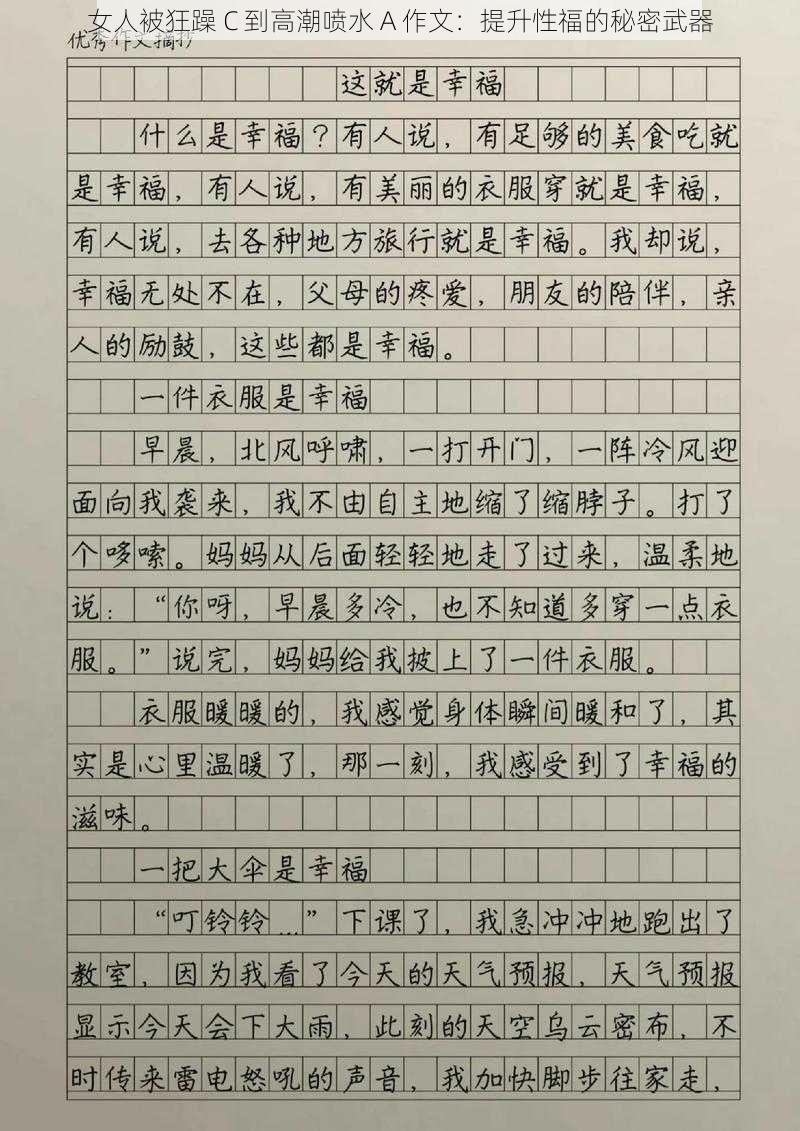 女人被狂躁C到高潮喷水A作文：提升性福的秘密武器
优秀作文摘抄
这就是幸福
什么是幸福？有人说，有足够的美食吃就
是幸福，有人说，有美丽的衣服穿就是幸福，
有人说，去各种地方旅行就是幸福。我却说，
幸福无处不在，父母的疼爱，朋友的陪伴，亲
人的励鼓，这些都是幸福。
一件衣服是幸福
早晨，北风呼啸，一打开门，一阵冷风迎
面向我袭来，我不由自主地缩了缩脖子。打了
个哆嗦。妈妈从后面轻轻地走了过来，温柔地
说：“你呀，早晨多冷，也不知道多穿一点衣
服。”说完，妈妈给我披上了一件衣服。
衣服暖暖的，我感觉身体瞬间暖和了，其
实是心里温暖了，那一刻，我感受到了幸福的
滋味。
一把大伞是幸福
“叮铃铃…”下课了，我急冲冲地跑出了
教室，因为我看了今天的天气预报，天气预报
显示今天会下大雨，此刻的天空乌云密布，不
时传来雷电怒吼的声音，我加快脚步往家走，